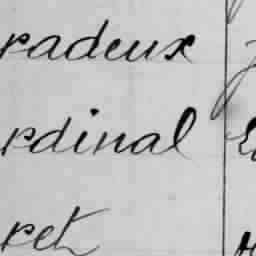 radeux
rdinal
ret